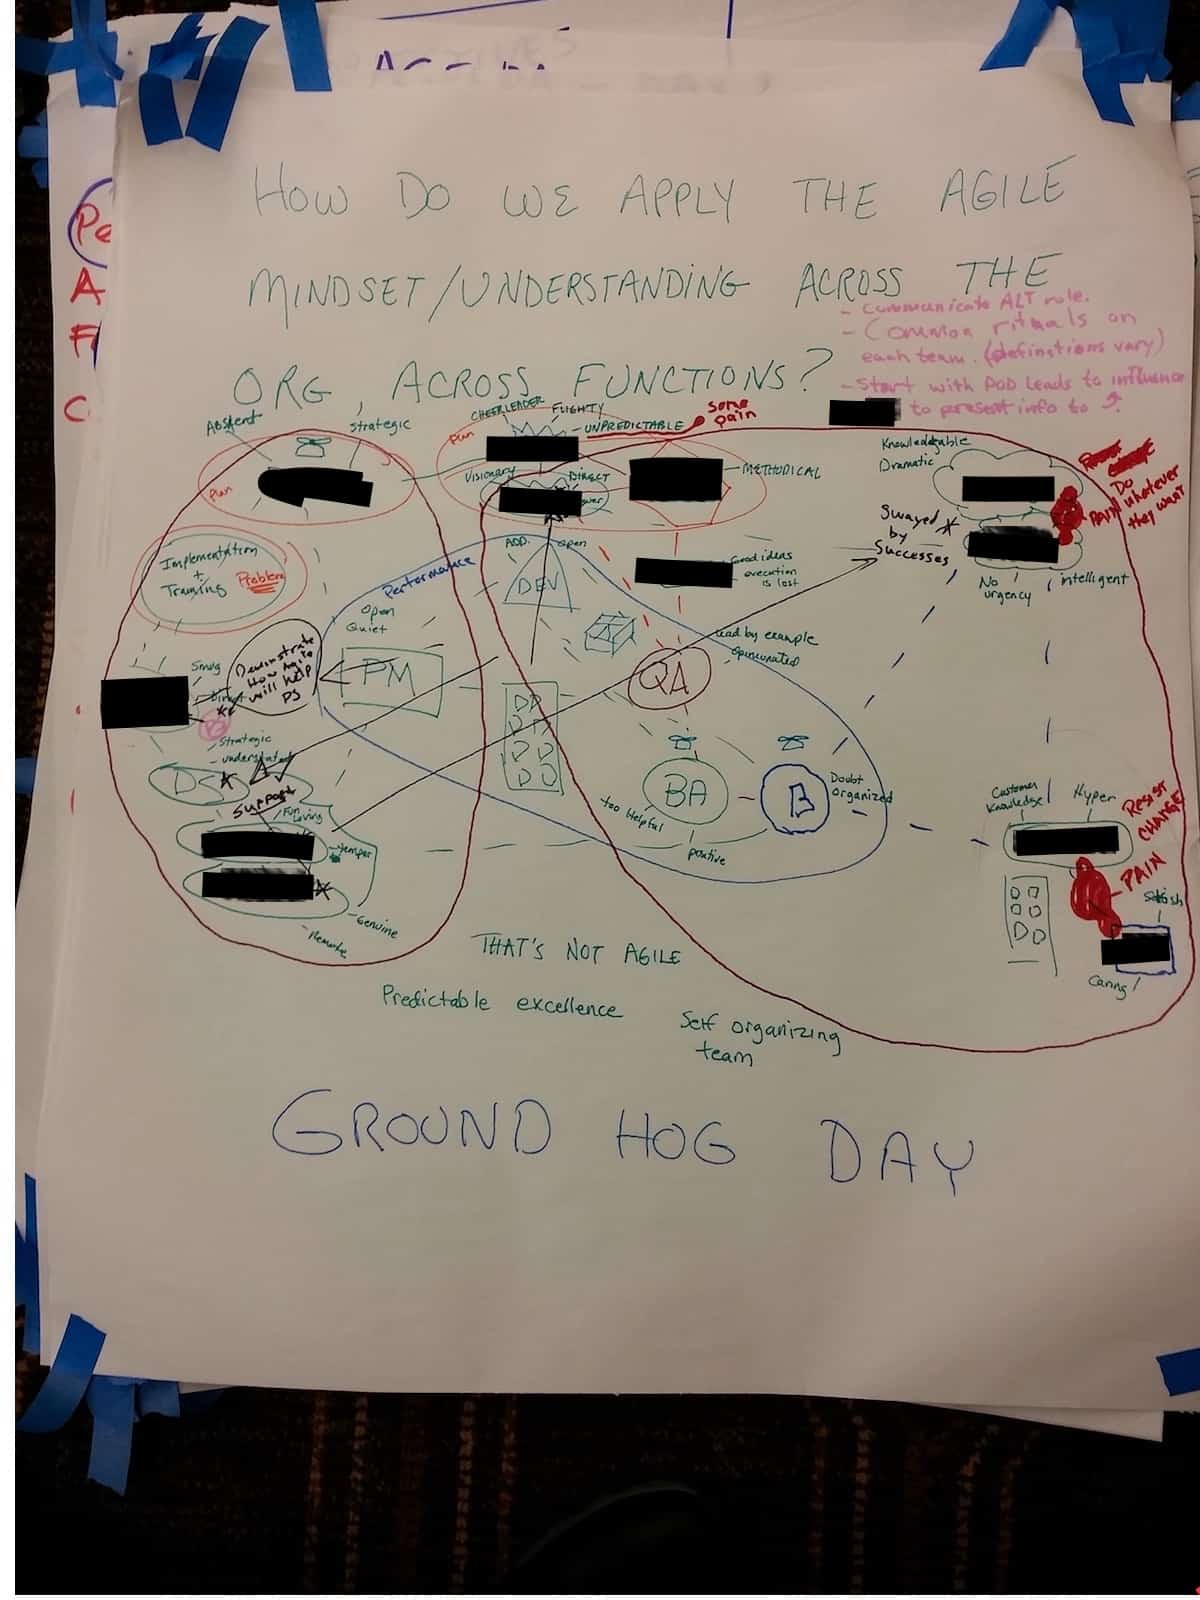 HOW DO WE APPLY THE AGILE
MINDSET/UNDERSTANDING ACROSS THE
ORG, ACROSS FUNCTIONS?
- Communicate ALT role.
- Common rituals on
each team. (definitions vary)
- Start with POD Leads to influence
to present info to
Pe
A
C
Absent
Strategic
Plan
CHEERLEADER
FLIGHTY
UNPREDICTABLE
Some
pain
Plan
Visionary
DIRECT
METHODICAL
Knowledgable
Dramatic
Do
whatever
they want
PAIN
Swayed
by
Successes
No
urgency
intelligent
Implementation
+
Training
Problem
Performance
ADD.
open
DEV
Good ideas
execution
is lost
Open
Quiet
PM
Lead by example
opinionated
QA
Smug
Direct
Demonstrate
How Agile
will help
PS
PS
- Strategic
- understated
DS
Support
Fun
Loving
temper
Genuine
Remote
BA
too Helpful
positive
B
Doubt
organized
Customer
Knowledge
Hyper
RESIST
CHANGE
PAIN
Selfish
Caring
THAT'S NOT AGILE
Predictable excellence
Self organizing
team
GROUND HOG DAY